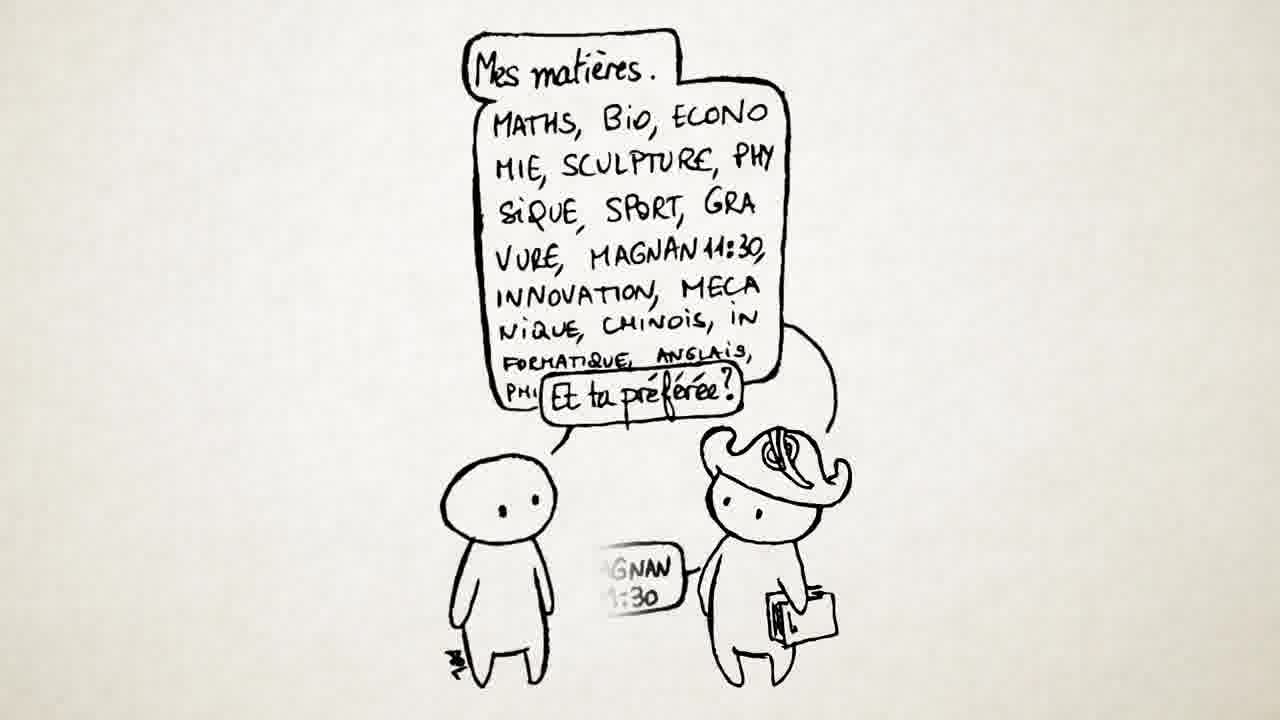 Mes matières.
MATHS, BiO, ECONO
MIE, SCULPTURE, PHY
SiQUE, SPORT, GRA
VURE, MAGNAN 11:30,
INNOVATION, MECA
NiQUE, CHINOIS, IN
FORMATIQUE, ANGLAIS,
PHI
Et ta préférée?
AGNAN
1:30